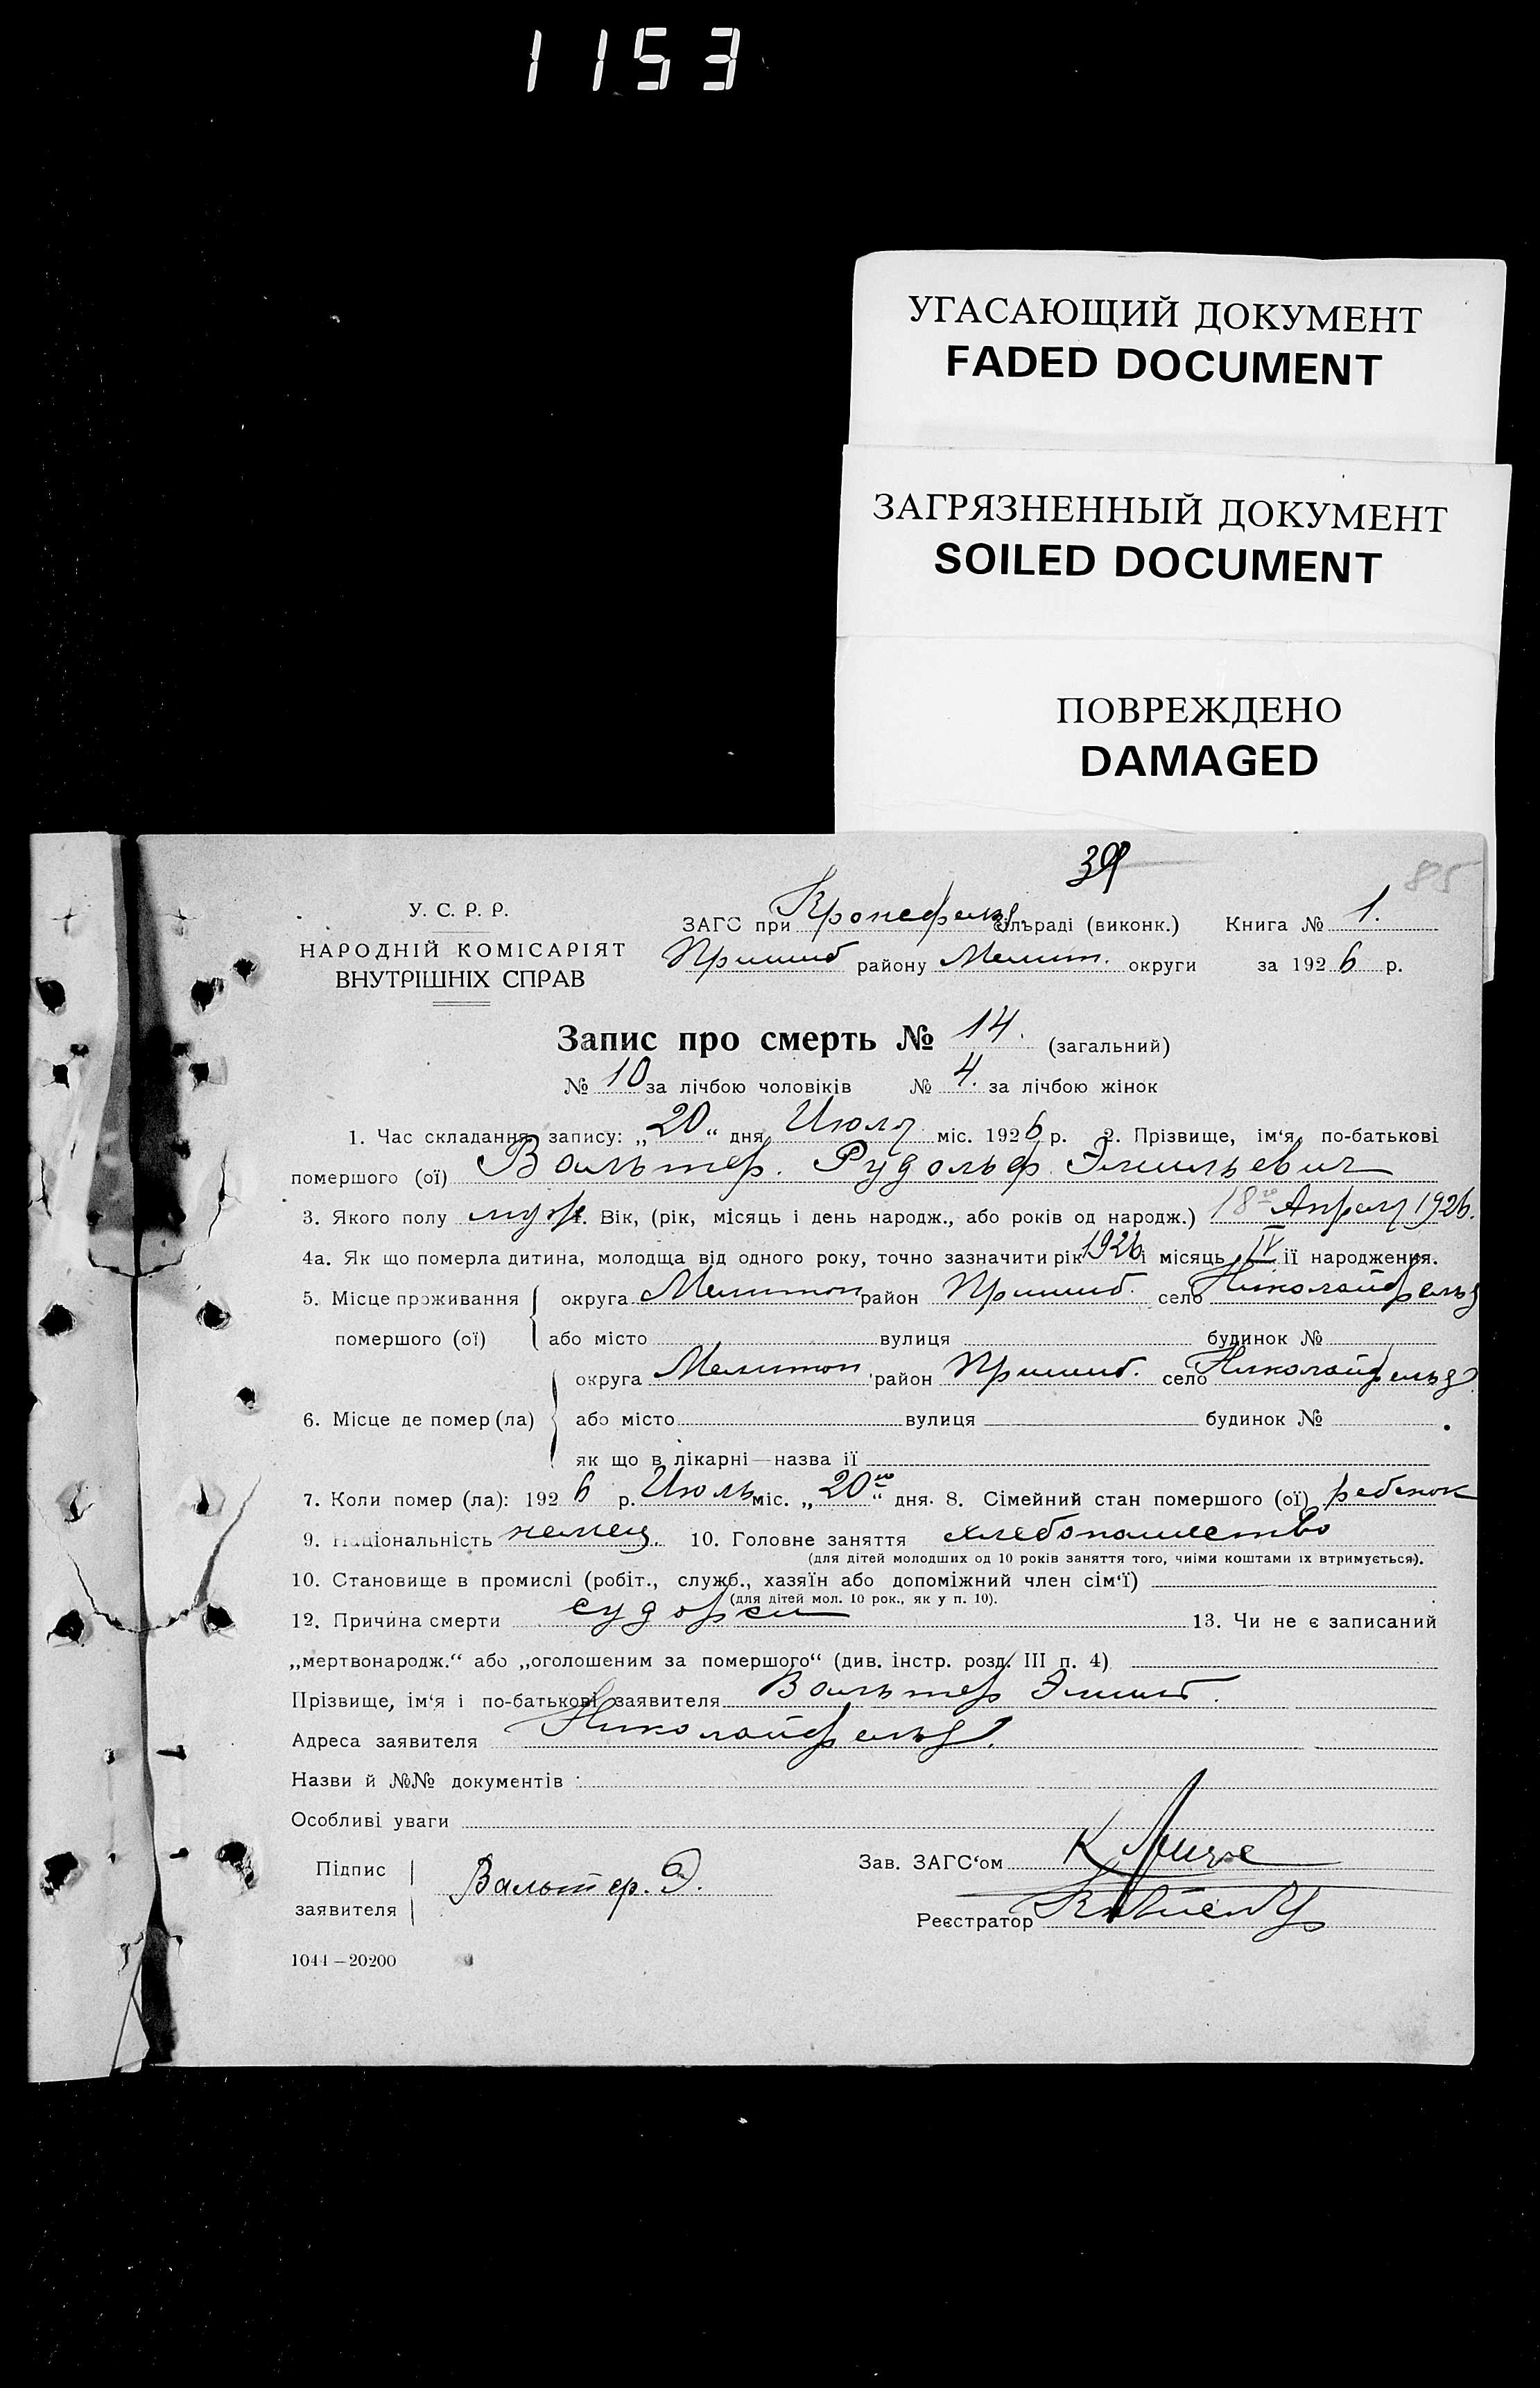 1153
УГАСАЮЩИЙ ДОКУМЕНТ
FADED DOCUMENT
ЗАГРЯЗНЕННЫЙ ДОКУМЕНТ
SOILED DOCUMENT
ПОВРЕЖДЕНО
DAMAGED
39
85
У. С. Р. Р.
НАРОДНІЙ КОМІСАРІЯТ
ВНУТРІШНІХ СПРАВ
ЗАГС при Кронефельд. сільраді (виконк.) Книга № 1.
Пришиб району Мелит. округи за 1926 р.
Запис про смерть № 14. (загальний)
№ 10 за лічбою чоловіків № 4. за лічбою жінок
1. Час складання запису: „20“ дня Июля міс. 1926 р. 2. Прізвище, ім‘я, по-батькові
помершого (ої) Вальтер. Рудольф Эмильевич
3. Якого полу муж 4. Вік, (рік, місяць і день народж., або років од народж.) 18го Апреля 1926.
4а. Як що померла дитина, молодща від одного року, точно зазначити рік 1926 і місяць IV її народження.
5. Місце проживання помершого (ої) округа Мелитоп район Пришиб. село Николайфельд
або місто вулиця будинок №
6. Місце де помер (ла) округа Мелитоп район Пришиб. село Николайфельд.
або місто вулиця будинок №
як що в лікарні—назва ії
7. Коли помер (ла): 1926 р. Июль міс. „20го“ дня. 8. Сімейний стан помершого (ої) ребенок
9. Національність немец. 10. Головне заняття хлебопашество
(для дітей молодших од 10 років заняття того, чиїми коштами їх втримується).
10. Становище в промислі (робіт., служб., хазяїн або допоміжний член сім‘ї)
(для дітей мол. 10 рок., як у п. 10).
12. Причина смерти судороги 13. Чи не є записаний
„мертвонародж.“ або „оголошеним за помершого“ (див. інстр. розд. III п. 4)
Прізвище, ім‘я і по-батькові заявителя Вальтер Эмиль.
Адреса заявителя Николайфельд.
Назви й №№ документів
Особливі уваги
Підпис заявителя Вальтер. Э.
Зав. ЗАГС‘ом
Реєстратор
1044—20200